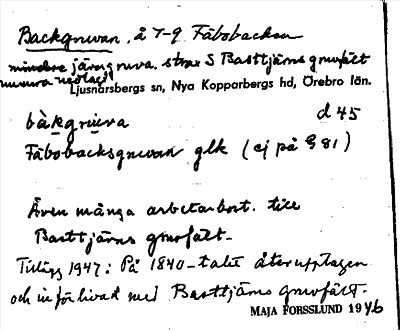 Backgruvan, å 7-9 Fäbobacken
mindre järngruva. strax S Basttjärns gruvfält
numera nedlagd
Ljusnarsbergs sn, Nya Kopparbergs hd, Örebro län.
bàkgrùva d 45
Fäbobacksgruvan glk (ej på § 81)
Även många arbetarbost. till
Basttjärns gruvfält.
Tillägg 1947: På 1840-talet återupptagen
och införlivad med Basttjärns gruvfält.
MAJA FORSSLUND 1946